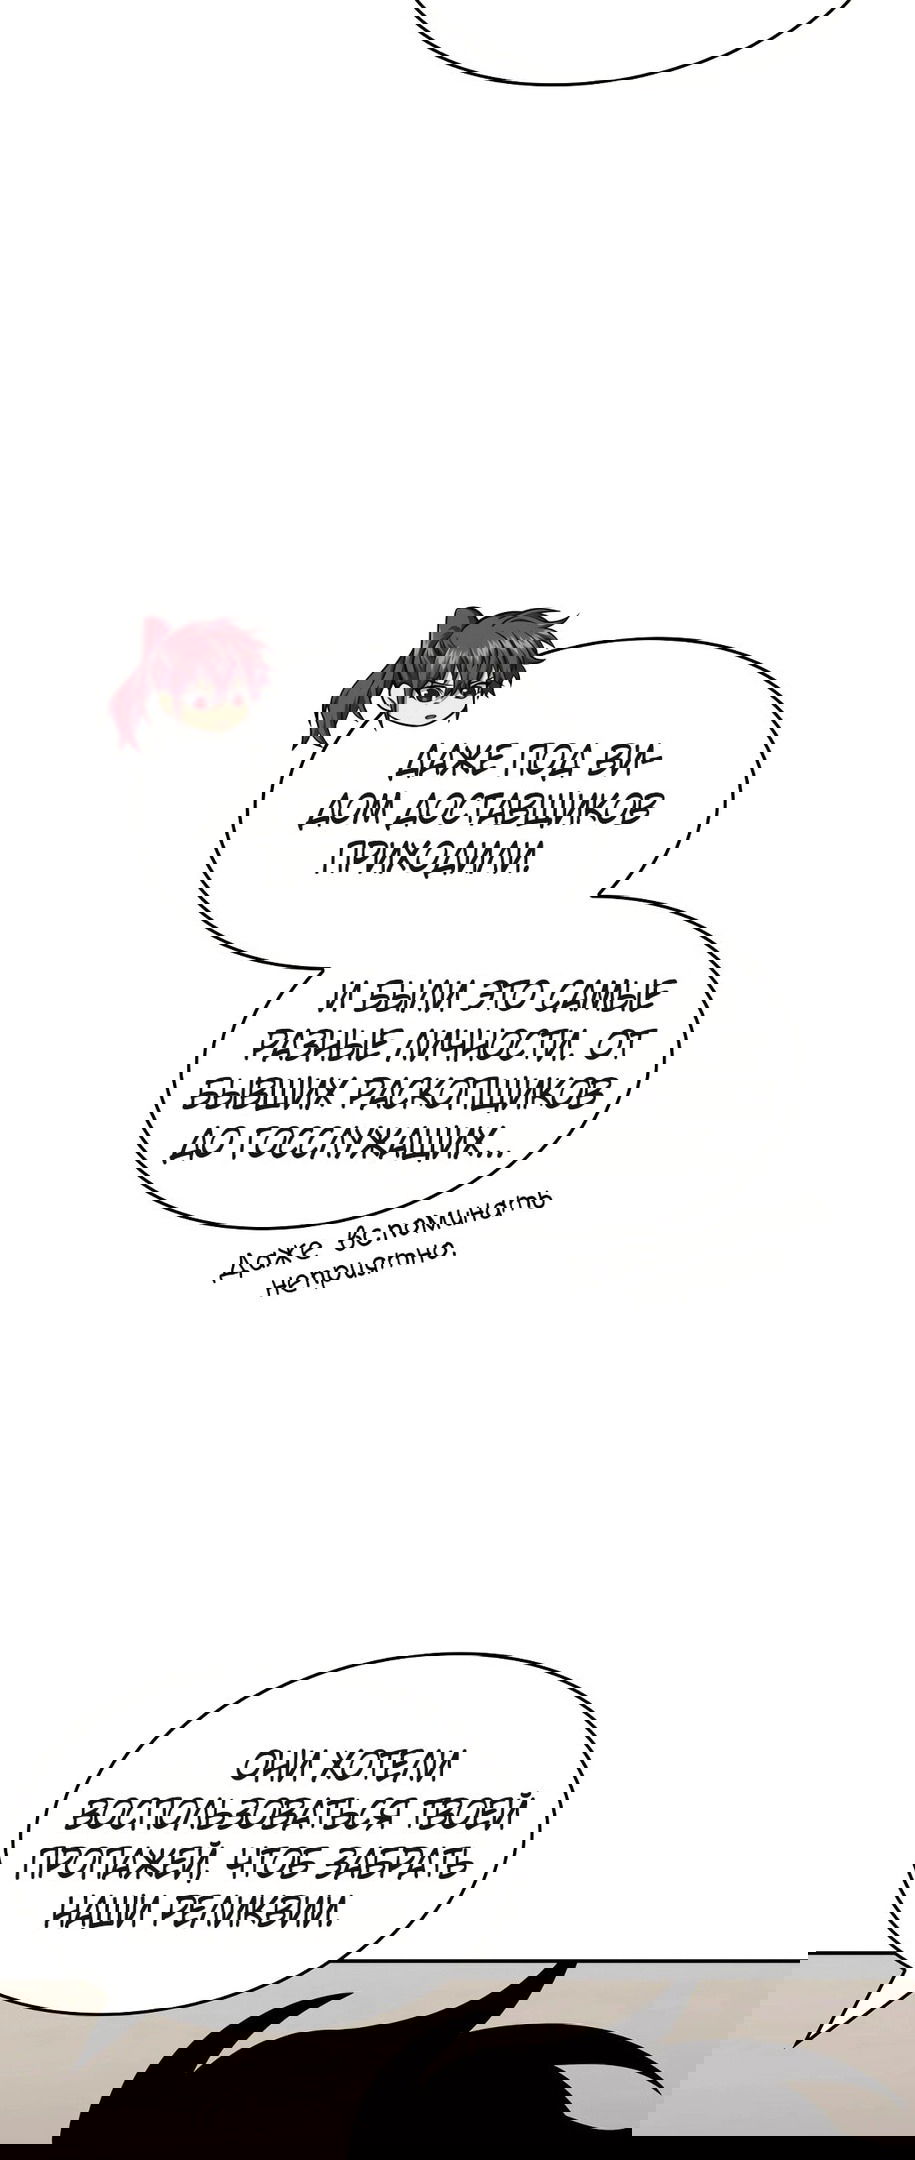 ДАЖЕ ПОД ВИ-
ДОМ ДОСТАВЩИКОВ
ПРИХОДИЛИ!
И БЫЛИ ЭТО САМЫЕ
РАЗНЫЕ ЛИЧНОСТИ. ОТ
БЫВШИХ РАСКОПЩИКОВ
ДО ГОССЛУЖАЩИХ...
Даже вспоминать
неприятно.
ОНИ ХОТЕЛИ
ВОСПОЛЬЗОВАТЬСЯ ТВОЕЙ
ПРОПАЖЕЙ, ЧТОБ ЗАБРАТЬ
НАШИ РЕЛИКВИИ!